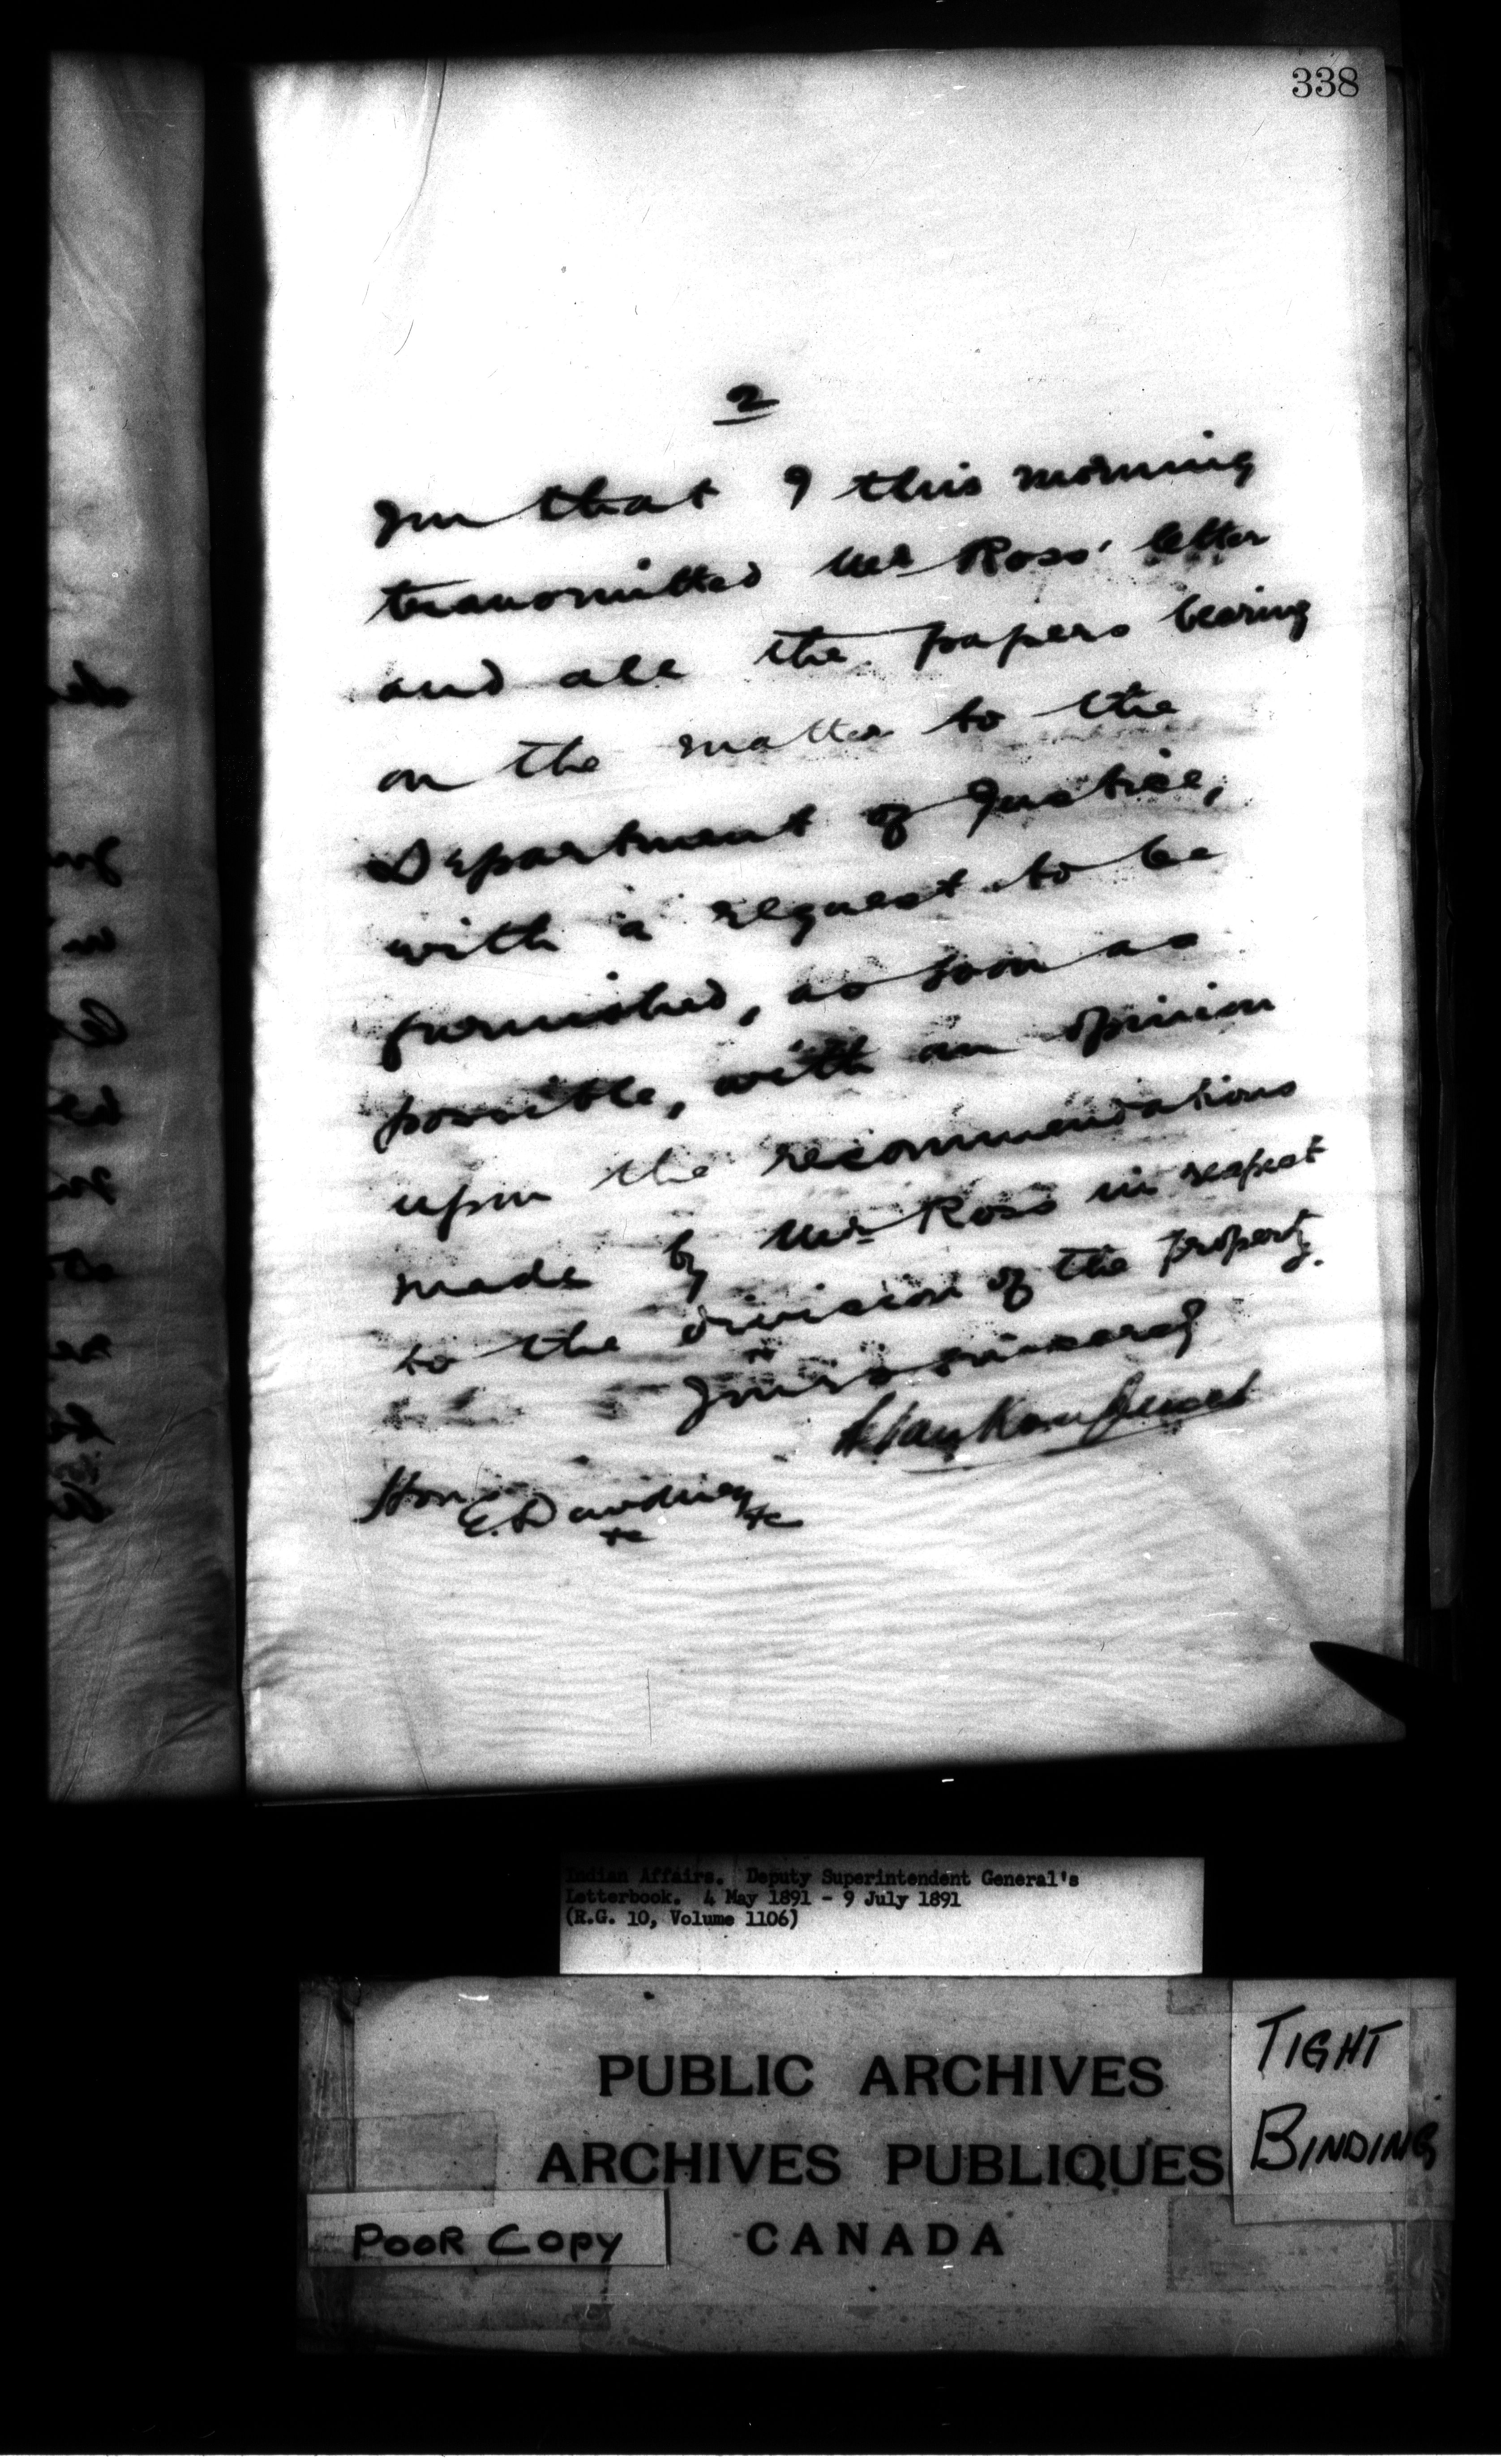 338
2
you that I this morning
transmitted Mr Ross' letter
and all the papers bearing
on the matter to the
Department of Justice,
with a request to be
furnished, as soon as
possible, with an opinion
upon the recommendations
made by Mr Ross in respect
to the division of the property.
Yours sincerely
L. Vankoughnet
Hon
E. Dewdney
&c &c
Indian Affairs. Deputy Superintendent General's
Letterbook. 4 May 1891 - 9 July 1891
(R.G. 10, Volume 1106)
PUBLIC ARCHIVES
ARCHIVES PUBLIQUES
CANADA
TIGHT
BINDING
POOR COPY